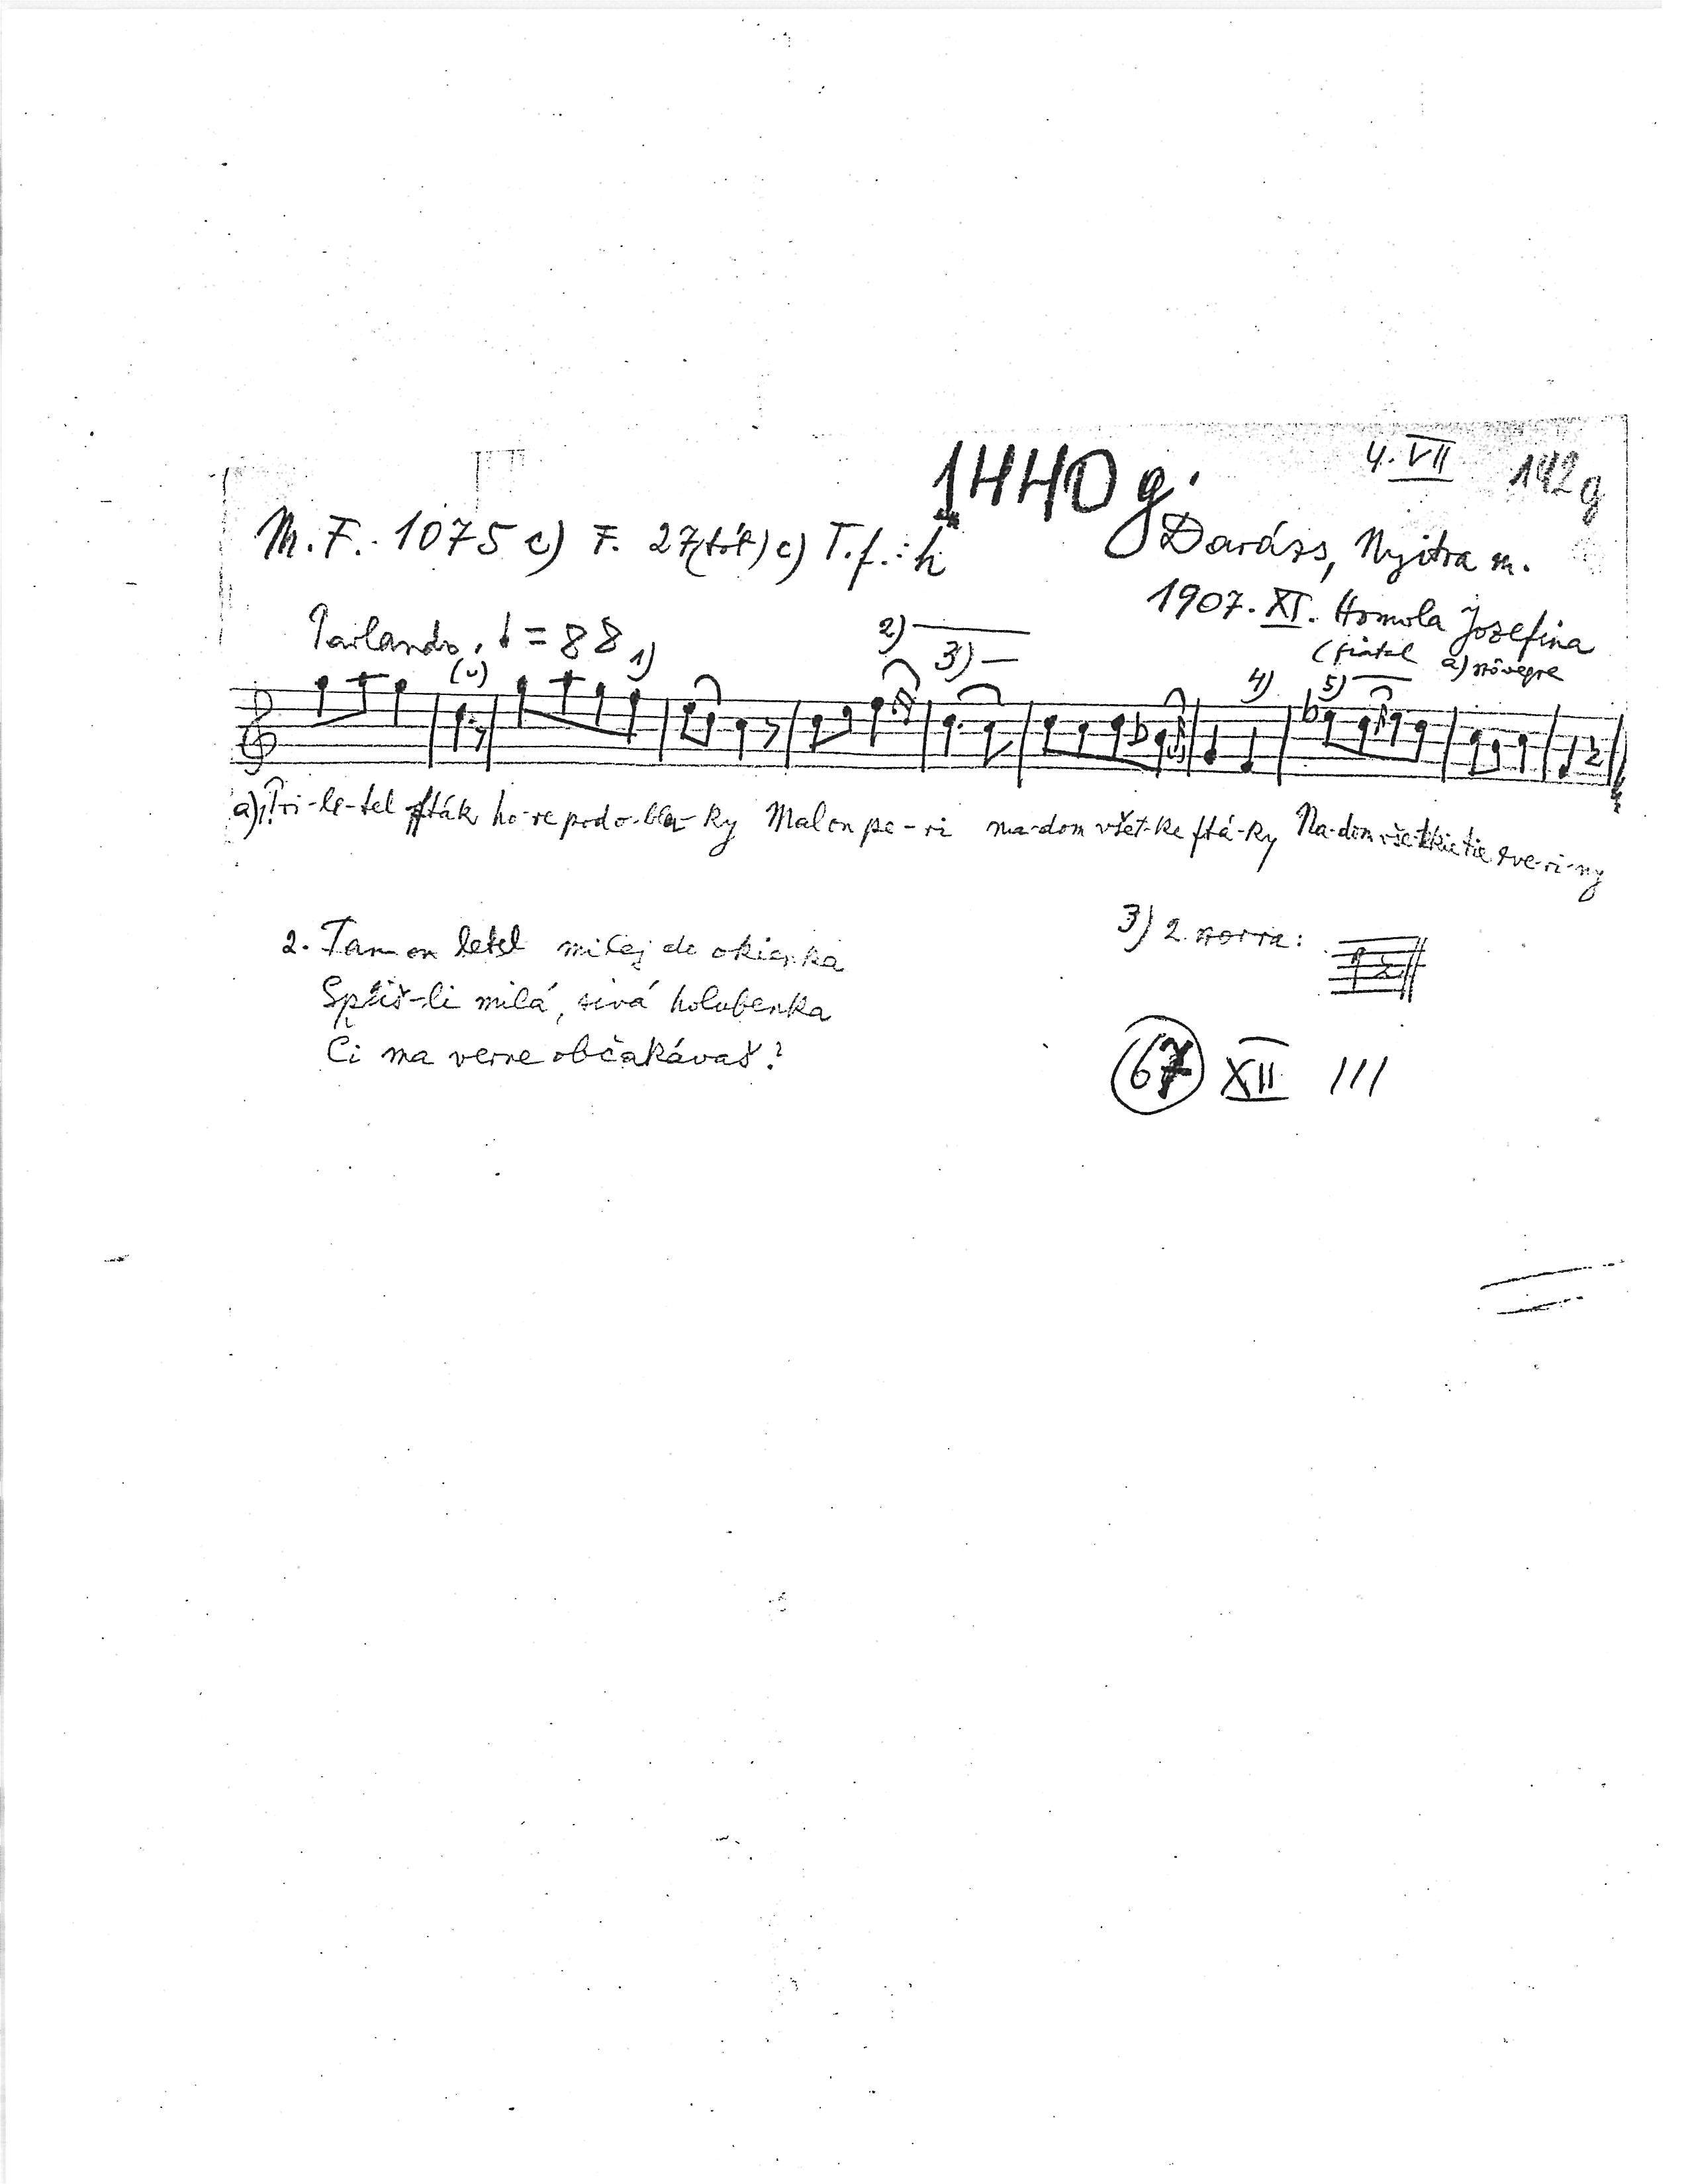 1440 g.
4. VII 142g
M.F. 1075 c) F. 27(tót) c) T.f.: h
Darázs, Nyitra m.
1907. XI. Homola Jozefina
(fiatal a) szövegre
Parlando, ♩ = 88
(∪) 1) 2) 3) 4) 5)
a) Pri-le-tel fták ho-re pod o-bla-ky Mal on pe-ri na-dom všet-ke ftá-ky Na-dom všetkie tie zve-ri-ny
2. Tam on letel milej do okienka
Spíš-li milá, sivá holubenka
Či ma verne občakávaš?
3) 2. sorra:
67 XII III